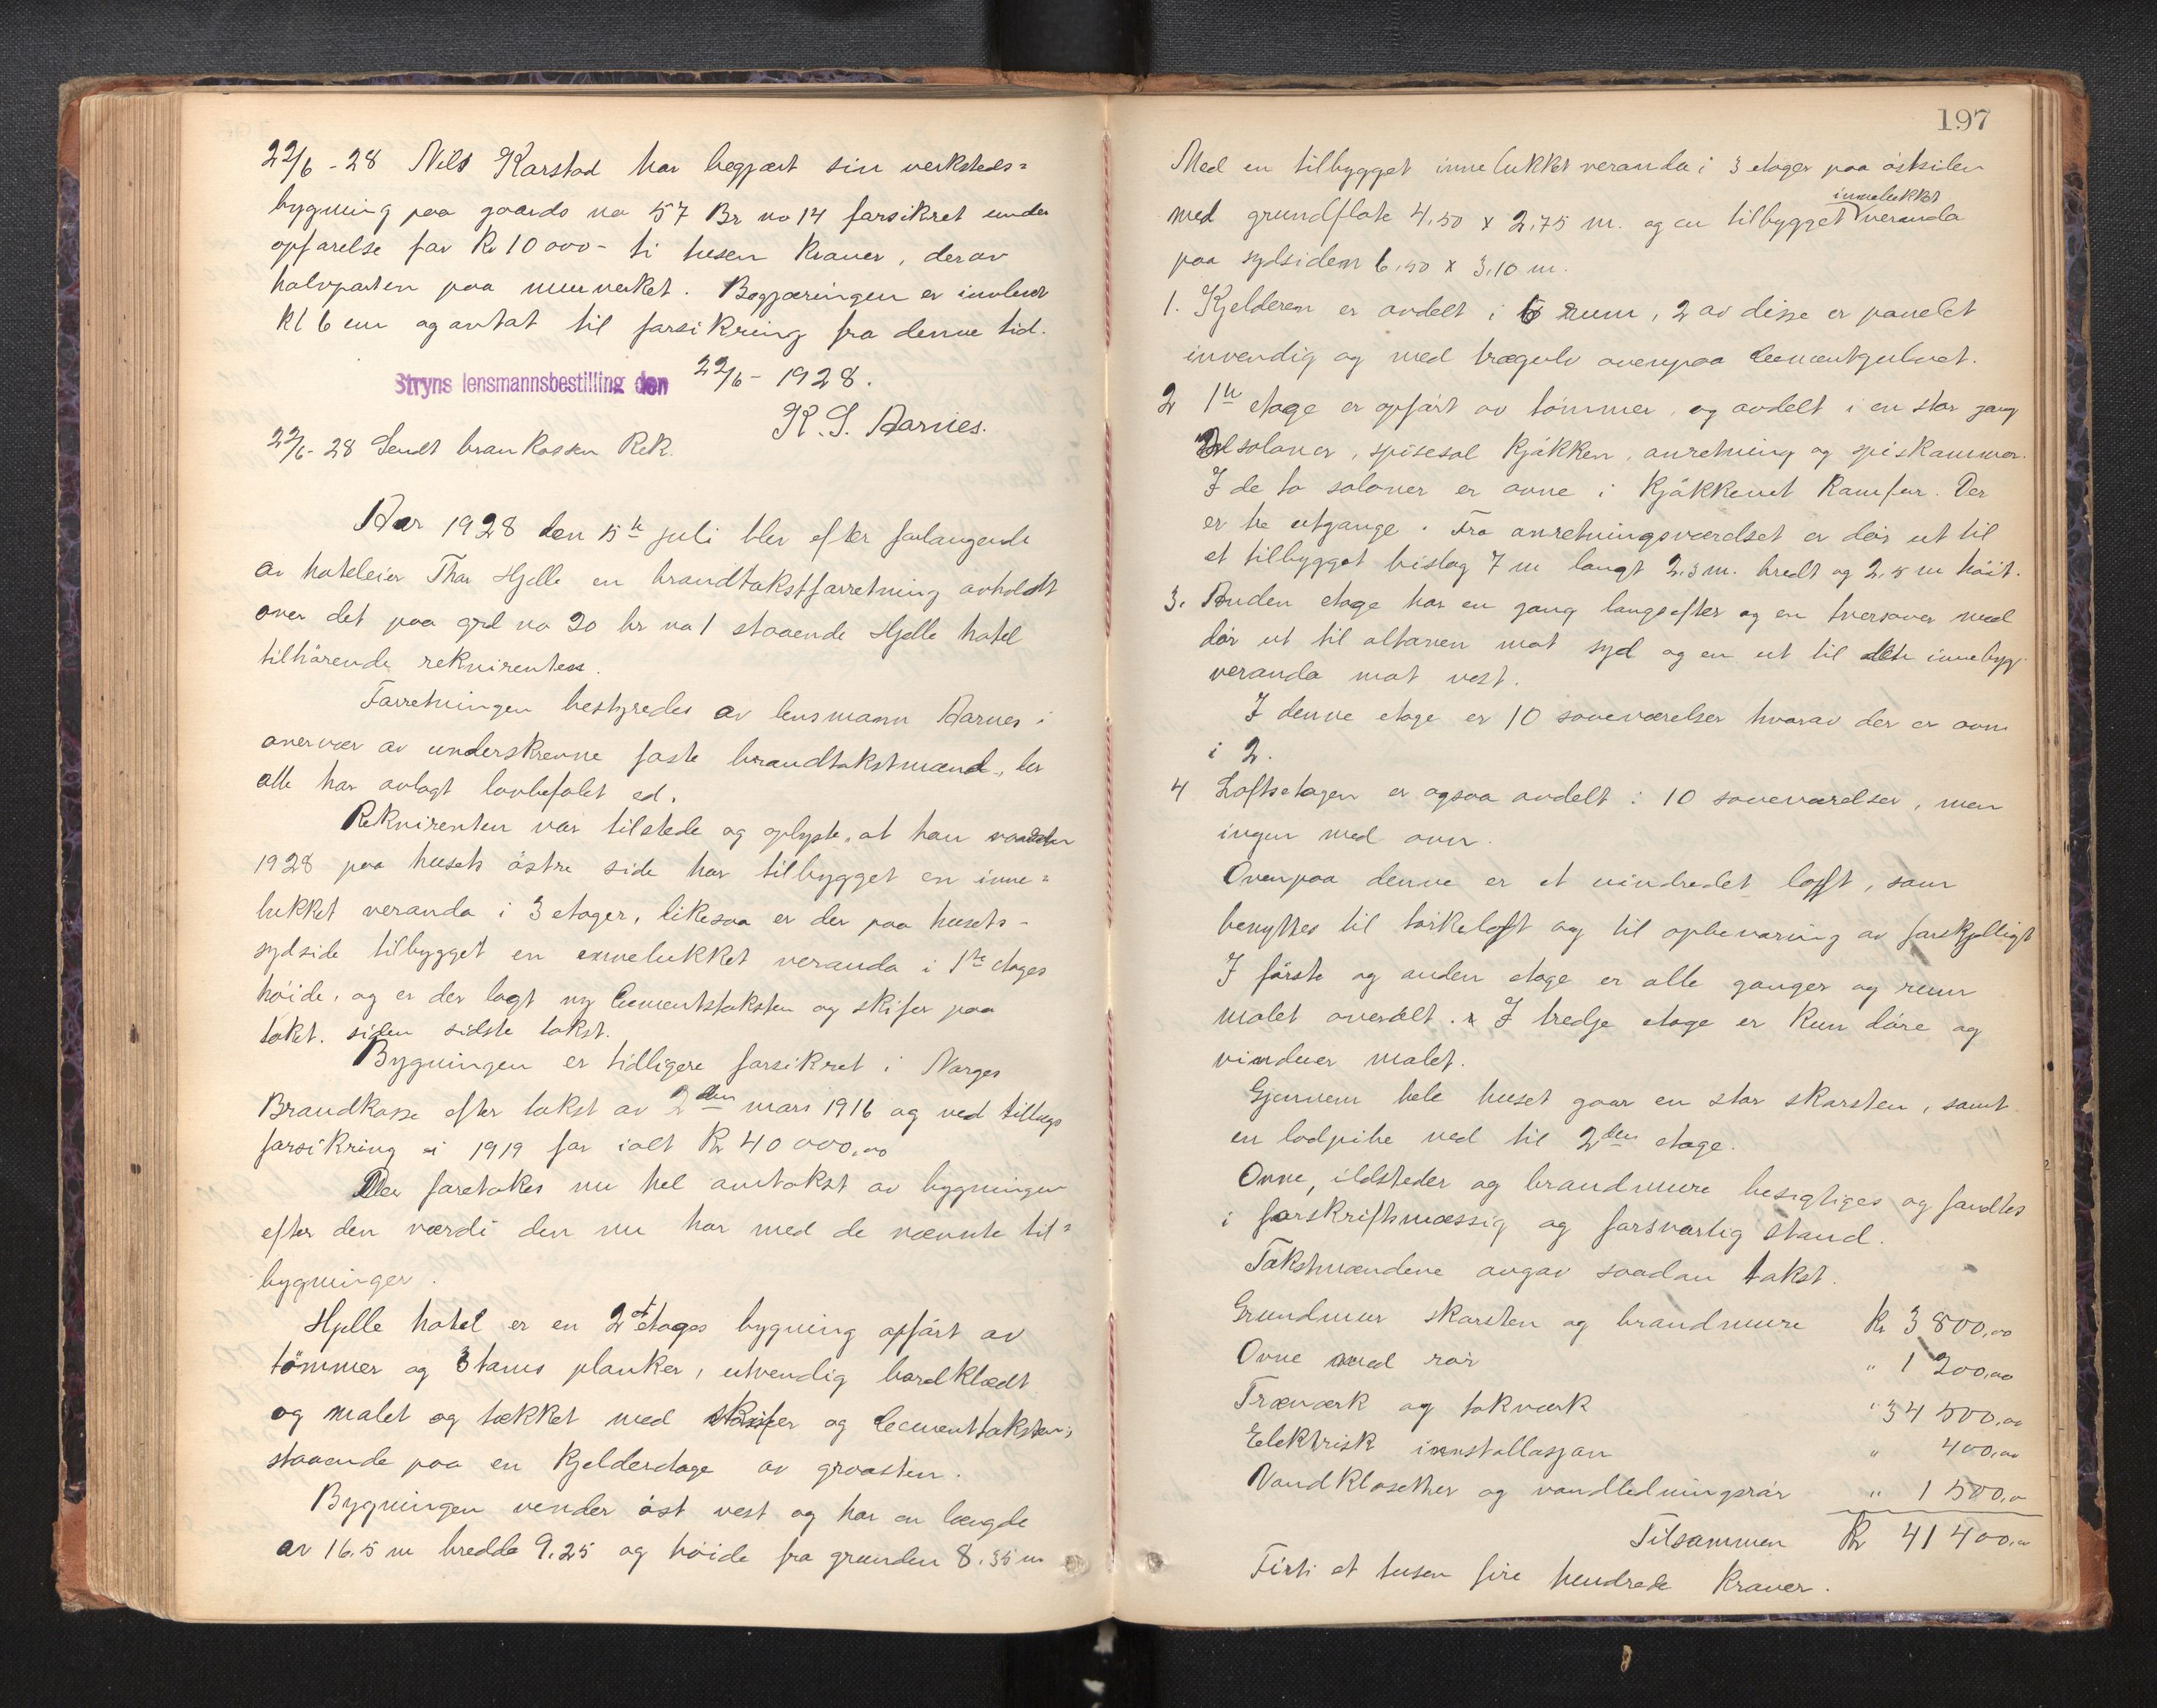 22/6 - 28 Nils Karstad har begjært sin verksteds=
bygning paa gaards no 57 Br no 14 forsikret under
opførelse for Kr 10 000 - ti tusen kroner, derav
halvparten paa murverket. Begjæringen er innlevert
Kl 6 em og antat til forsikring fra denne tid.
Stryns lensmannsbestilling den 22/6 - 1928.
K. S. Aarnes.
22/6 - 28 Sendt brankassen Rek.
Aar 1928 den 5te juli blev efter forlangende
av hoteleier Thor Hjelle en brandtakstforretning avholdt
over det paa grd no 20 br no 1 staaende Hjelle hotel
tilhörende rekvirenten.
Forretningen bestyredes av lensmann Aarnes i
overvær av underskrevne faste brandtakstmænd, der
alle har avlagt lovbefalet ed.
Rekvirenten var tilstede og oplyste, at han
1928 paa husets östre side har tilbygget en inne=
lukket veranda i 3 etager, likesaa er der paa husets-
sydside tilbygget en innelukket veranda i 1ste etages
höide, og er der lagt ny Cementstaksten og skifer paa
taket. siden sidste takst.
Bygningen er tidligere forsikret i Norges
Brandkasse efter takst av 2den mars 1916 og ved tillægs
forsikring i 1919 for ialt Kr 40 000,00
Der foretokes nu hel omtakst av bygningen
efter den værdi den nu har med de nævnte til=
bygninger.
Hjelle hotel er en 2 etages bygning opfört av
tömmer og 3 toms planker, utvendig bordklædt
og malet og tækket med skifer og Cementtaksten,
staaende paa en Kjelderetage av graasten.
Bygningen vender öst vest og har en længde
av 16,5 m bredde 9.25 og höide fra grunden 8.35 m
197
Med en tilbygget innelukket veranda i 3 etager paa östsiden
innelukket
med grundflate 4,50 x 2,75 m. og en tilbygget veranda
paa sydsiden 6,50 x 3,10 m.
1. Kjelderen er avdelt i 6 rum, 2 av disse er panelet
invendig og med trægulv ovenpaa Cementgulvet.
2 1ste etage er opfört av tömmer, og avdelt i en stor gang
2 saloner, spisesal Kjökken, anretning og spiskammer.
I de to saloner er ovne i Kjökkenet Komfur. Der
er tre utgange. Fra anretningsværelset er dör ut til
et tilbygget bislag 7 m langt 2,3 m. bredt og 2,5 m höit.
3. Anden etage har en gang langsefter og en tversover med
dör ut til altanen mot syd og en ut til den innebyg.
veranda mot vest.
I denne etage er 10 soveværelser hvorav der er ovn
i 2.
4 Loftsetagen er ogsaa avdelt i 10 soveværelser, men
ingen med ovn.
Ovenpaa denne er et uindredet loft, som
benyttes til törkeloft og til opbevaring av forskjelligt
I förste og anden etage er alle ganger og rum
malet overalt. I tredje etage er kun döre og
vinduer malet.
Gjennem hele huset gaar en stor skorsten, samt
en lodpibe ned til 2den etage.
Ovne, ildsteder og brandmure besigtiges og fandtes
i forskriftsmæssig og forsvarlig stand.
Takstmændene avgav saadan takst.
Grundmur skorsten og brandmure Kr 3 800,00
Ovne med rör " 1 200,00
Træverk og takverk " 34 500,00
Elektrisk innstallasjon " 400,00
Vandklosetter og vandledningsrör " 1 500,0
Tilsammen Kr 41 400,00
Firti et tusen fire hundrede Kroner.